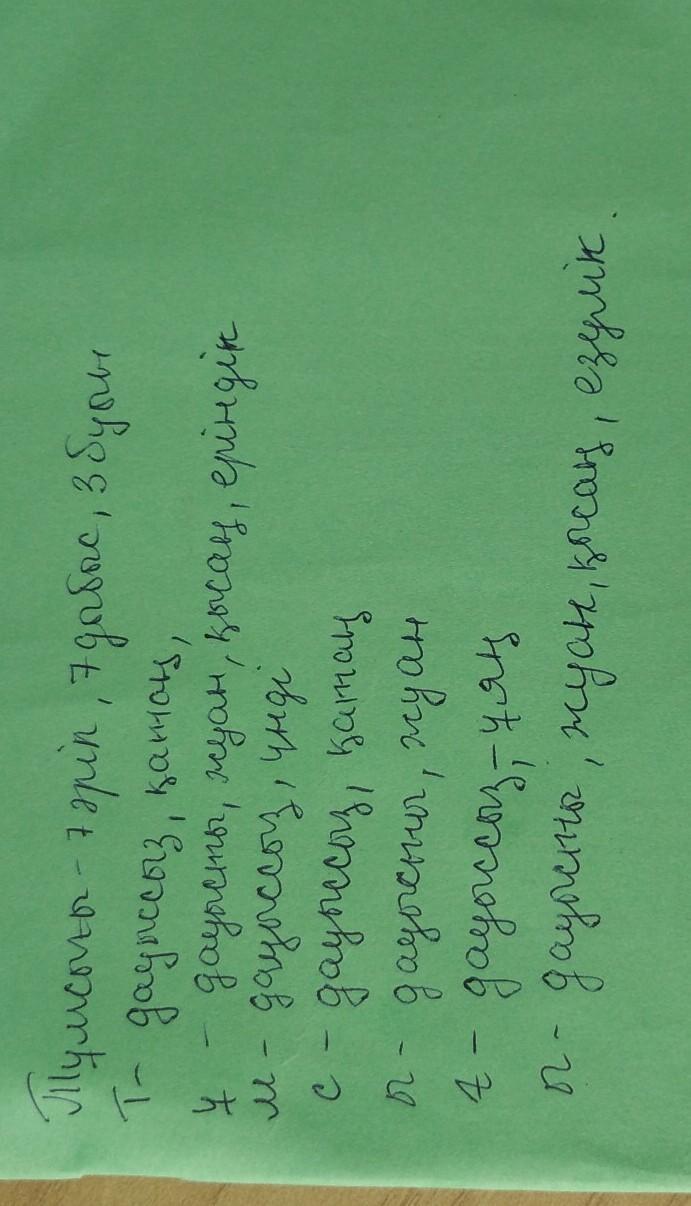 Тұмсығы - 7 әріп, 7 дыбыс, 3 буын
Т - дауыссыз, қатаң,
Ұ - дауысты, жуан, қысаң, еріндік
м - дауыссыз, үнді
с - дауыссыз, қатаң
ы - дауысты, жуан
ғ - дауыссыз, - ұяң
ы - дауысты, жуан, қысаң, езулік.